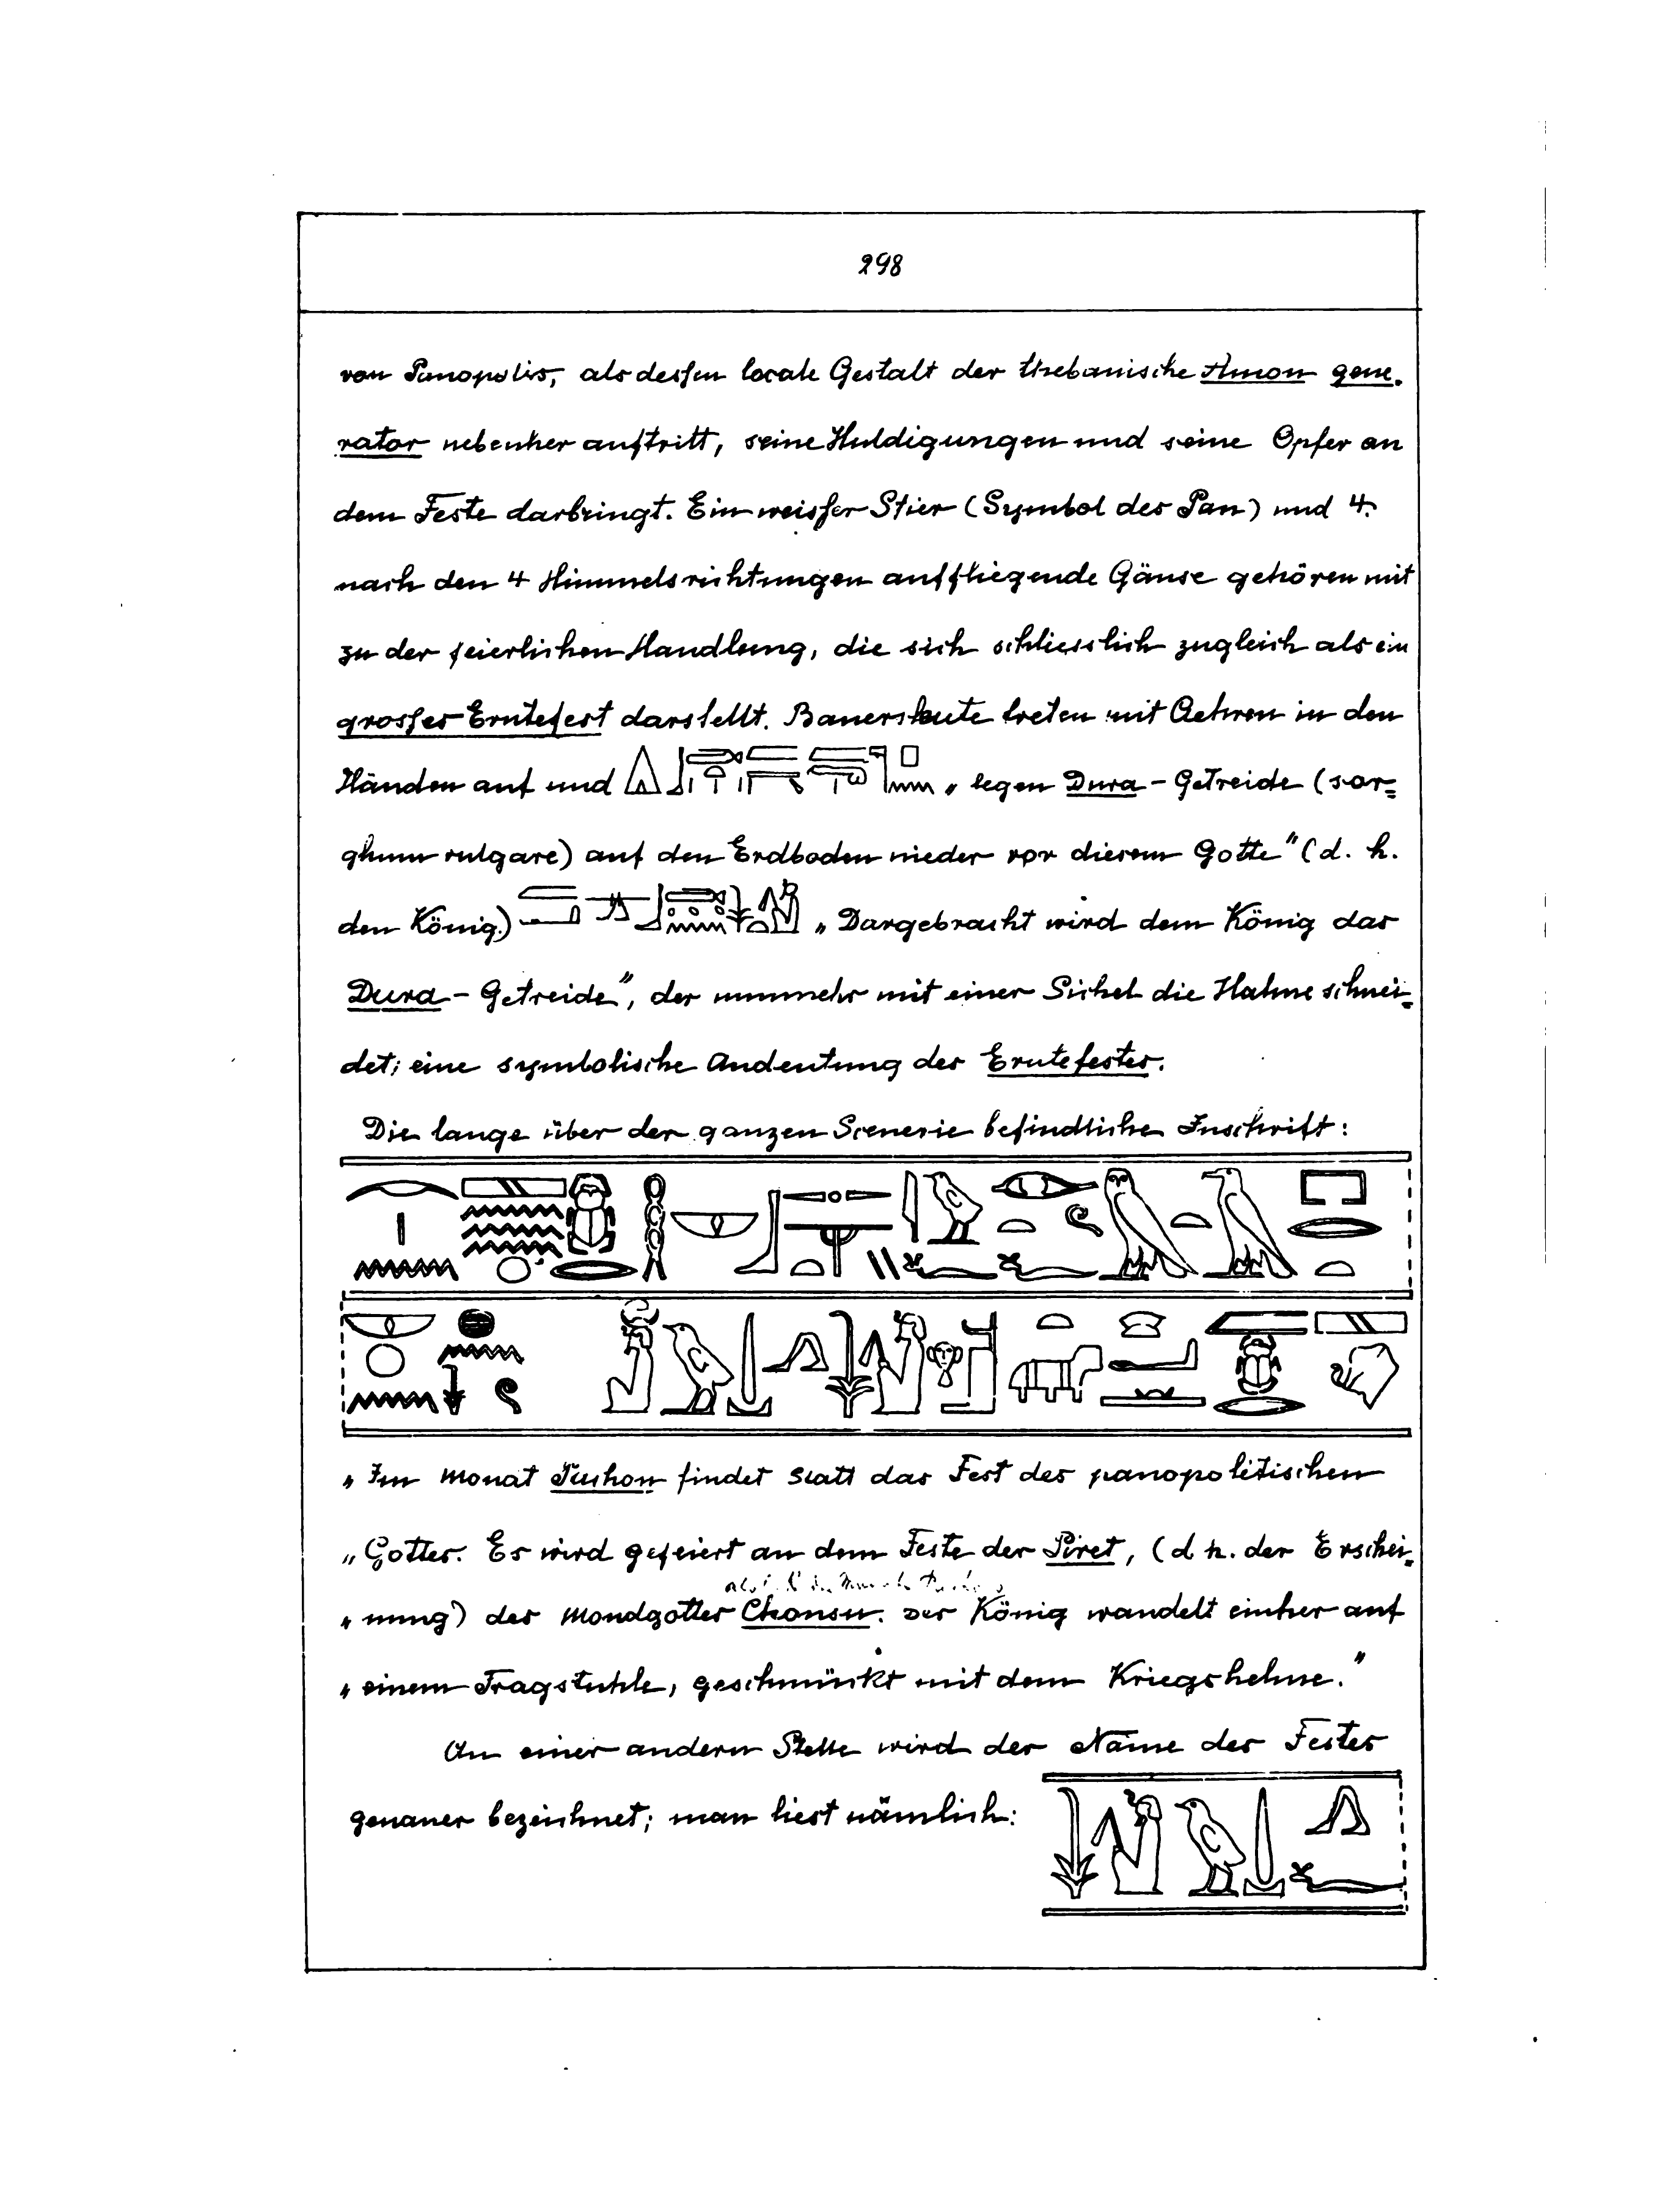 298
von Panopolis, als dessen locale Gestalt der thebanische Amon gene-
rator nebenher auftritt, seine Huldigungen und seine Opfer an
dem Feste darbringt. Ein weisser Stier (Symbol des Pan) und 4.
nach den 4 Himmelsrichtungen auffliegende Gänse gehören mit
zu der feierlichen Handlung, die sich schliesslich zugleich als ein
grosses Erntefest darstellt. Bauersleute treten mit Aehren in den
Händen auf und „legen Dura-Getreide (sor=
ghum vulgare) auf den Erdboden nieder vor diesem Gotte" (d. h.
den König.) „Dargebracht wird dem König das
Dura-Getreide", der nunmehr mit einer Sichel die Halme schnei=
det; eine symbolische Andeutung des Erntefestes.
Die lange über der ganzen Scenerie befindliche Inschrift:
„Im Monat Pachon findet statt das Fest des panopolitischen
„Gottes. Es wird gefeiert an dem Feste der Piret, (d h. der Erschei=
„nung) des Mondgottes Chonsu. Der König wandelt einher auf
„einem Tragstuhle, geschmückt mit dem Kriegshelme."
An einer andern Stelle wird der Name des Festes
genauer bezeichnet; man liest nämlich: